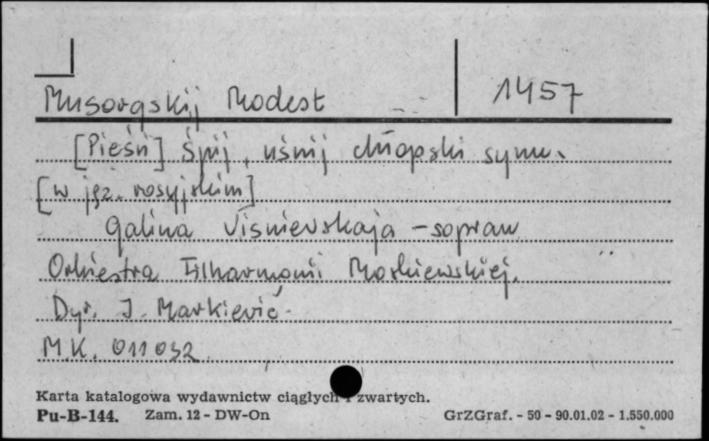 Musorgskij Modest 1457
[Pieśń] Śpij, uśnij chłopski synu.
[w jęz. rosyjskim]
Galina Visnievskaja - sopran
Orkiestra Filharmonii Moskiewskiej.
Dyr. I. Markievič.
MK. 011032
Karta katalogowa wydawnictw ciągłych i zwartych.
Pu-B-144. Zam. 12 - DW-On GrZGraf. - 50 - 90.01.02 - 1.550.000